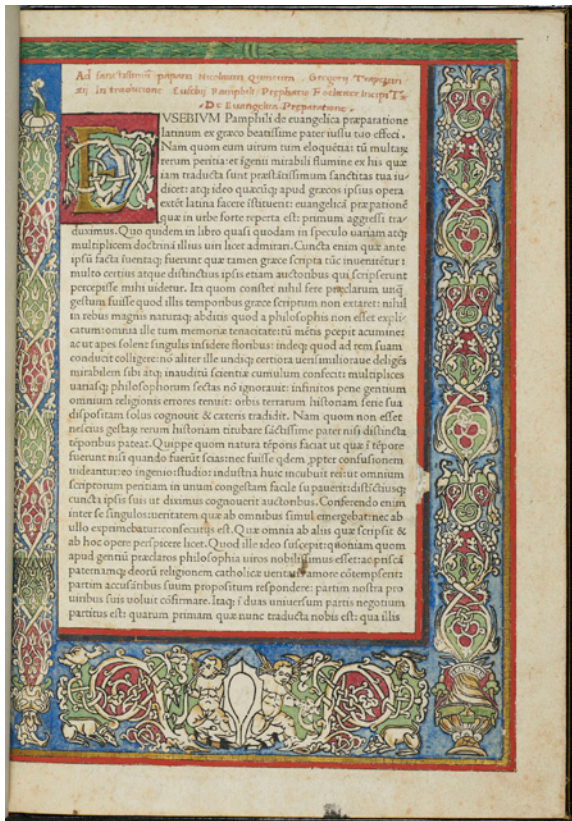 Ad sanctissimū papam Nicolaum Quintum. Georgii Trapezun
zii In traductione Eusebii Pamphili Prephatio
De Evangelica Preparatione.
EVSEBIVM Pamphili de euangelica præparatione
latinum ex græco beatissime pater iussu tuo effeci.
Nam quom eum uirum tum eloquētia: tū multaꝝ
rerum peritia: et īgenii mirabili flumine ex his quæ
iam traducta sunt præstātissimum sanctitas tua iu-
dicet: atq; ideo quæcūq; apud græcos ipsius opera
extēt latina facere īstituerit: euangelicā præparationē
quæ in urbe forte reperta est: primum aggressi tra-
duximus. Quo quidem in libro quasi quodam in speculo uariam atq;
multiplicem doctrinā illius uiri licet admirari. Cuncta enim quæ ante
ipsū facta īuentaq; fuerunt quæ tamen græce scripta tūc inuenirētur:
multo certius atque distinctius ipsis etiam auctoribus qui scripserunt
percepisse mihi uidetur. Ita quom constet nihil fere præclarum unq̄
gestum fuisse quod illis temporibus græce scriptum non extaret: nihil
in rebus magnis naturaq; abditis quod a philosophis non esset expli-
catum: omnia ille tum memoriæ tenacitate: tū mētis pcepit acumine:
ac ut apes solent singulis insidere floribus: indeq; quod ad rem suam
conducit colligere: nō aliter ille undiq; certiora uerisimilioraue deligēs
mirabilem sibi atq; inauditū scientiæ cumulum confecit: multiplices
uariasq; philosophorum sectas nō ignorauit: infinitos pene gentium
omnium religionis errores tenuit: orbis terrarum historiam serie sua
dispositam solus cognouit & cæteris tradidit. Nam quom non esset
nescius gestaꝝ rerum historiam titubare sāctissime pater nisi distincta
tēporibus pateat. Quippe quom natura tēporis faciat ut quæ ī tēpore
fuerunt nisi quando fuerūt scias: nec fuisse qdem ꝓpter confusionem
uideantur: eo ingenio: studio: industria huic incubuit rei: ut omnium
scriptorum peritiam in unum congestam facile supauerit: distīctiusq;
cuncta ipsis suis ut diximus cognouerit auctoribus. Conferendo enim
inter se singulos: ueritatem quæ ab omnibus simul emergebat: nec ab
ullo exprimebatur: consecutus est. Quæ omnia ab aliis quæ scripsit &
ab hoc opere perspicere licet. Quod ille ideo suscepit: quoniam quom
apud gentiū præclaros philosophia uiros nobilissimus esset: ac priscā
paternamq; deorū religionem catholicæ ueritatis amore cōtempserit:
partim accusātibus suum propositum respondere: partim nostra pro
uiribus suis uoluit cōfirmare. Itaq; ī duas uniuersum partis negotium
partitus est: quarum primam quæ nunc traducta nobis est: qua illis